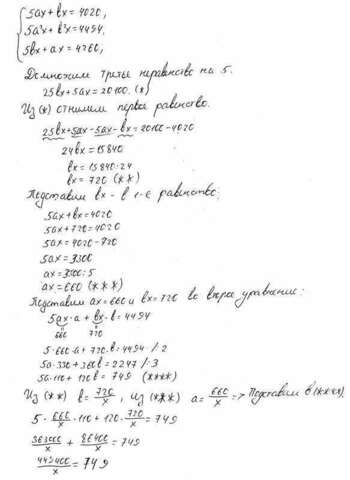 5ax + bx = 4020,
5a²x + b²x = 4494,
5bx + ax = 4260,
Домножим третье неравенство на 5.
25bx + 5ax = 20100. (*)
Из (*) отнимем первое равенство.
25bx + 5ax - 5ax - bx = 20100 - 4020
24bx = 15840
bx = 15840:24
bx = 720 (**)
Подставим bx - в 1-е равенство:
5ax + bx = 4020
5ax + 720 = 4020
5ax = 4020 - 720
5ax = 3300
ax = 3300:5
ax = 660 (***)
Подставим ax = 660 и bx = 720 во второе уравнение:
5ax·a + bx·b = 4494
660 720
5·660·a + 720·b = 4494 /:2
5a·330 + 360b = 2247 /:3
5a·110 + 120b = 749 (****)
Из (**) b = 720/x, из (***) a = 660/x => Подставим в (****)
5·660/x·110 + 120·720/x = 749
363000/x + 86400/x = 749
449400/x = 749